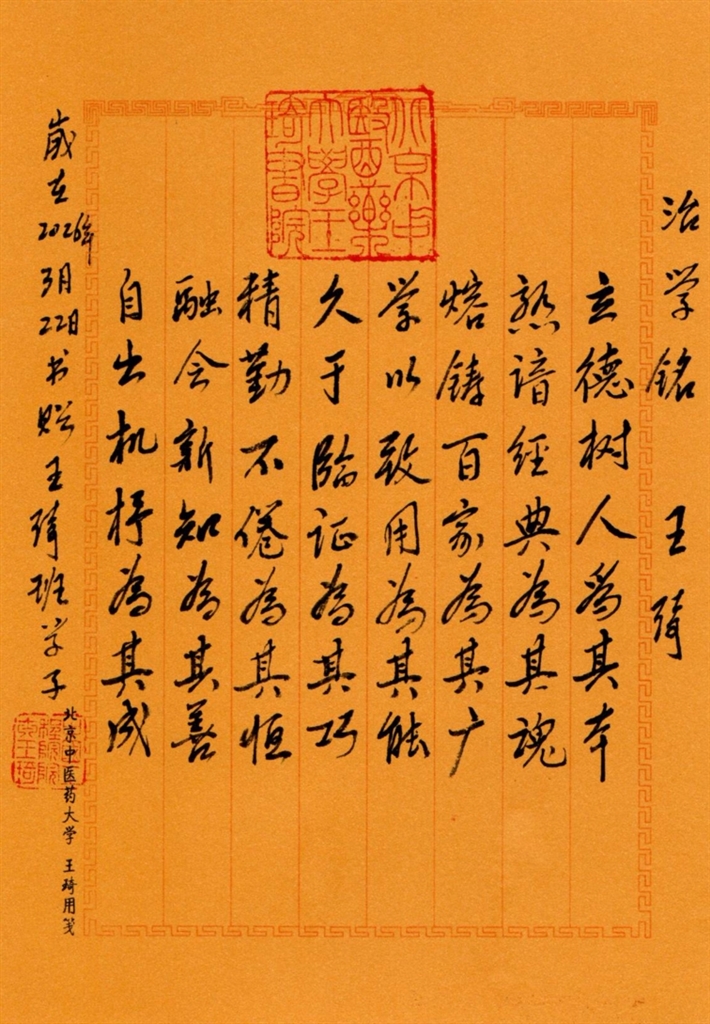 治学铭 王琦
立德树人為其本
熟谙經典為其魂
熔铸百家為其广
学以致用為其能
久于临证為其巧
精勤不倦為其恒
融会新知為其善
自出机杼為其成
歲在2026年3月22日书赠王琦班学子
北京中医药大学 王琦用笺
北京中
醫藥
大學王
琦書院